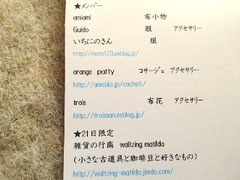 ★メンバー
amiami 布小物
Guido 服 アクセサリー
いちにのさん 服
http://mens123.exblog.jp/
orange patty コサージュ アクセサリー
http://ameblo.jp/cachoti/
trois 布花 アクセサリー
http://troissan.exblog.jp/
★21日限定
雑貨の行商 waltzing matilda
(小さな古道具と珈琲豆と好きなもの)
http://waltzing-matilda.jimdo.com/